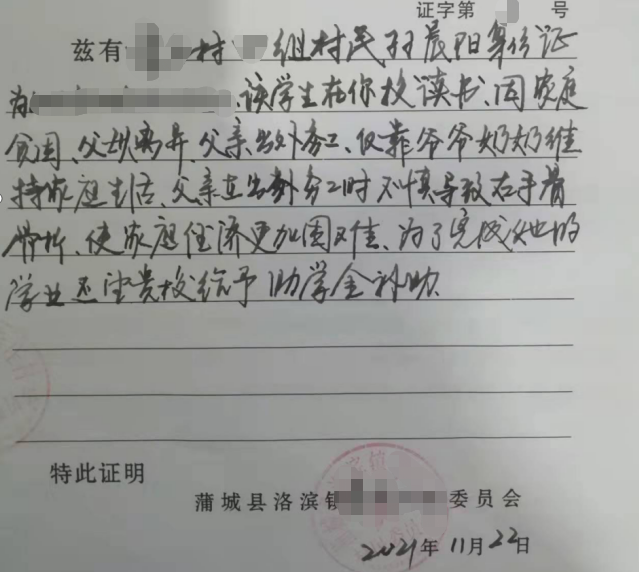 证字第 号
兹有 村 组村民 晨阳身份证
为 、该学生在你校读书、因家庭
贫困、父母离异、父亲出外务工、仅靠爷爷奶奶维
持家庭生活、父亲在出外务工时不慎导致右手骨
骨折、使家庭经济更加困难、为了完成她的
学业还望贵校给予助学金补助.
特此证明
蒲城县洛滨镇 委员会
2021年11月22日